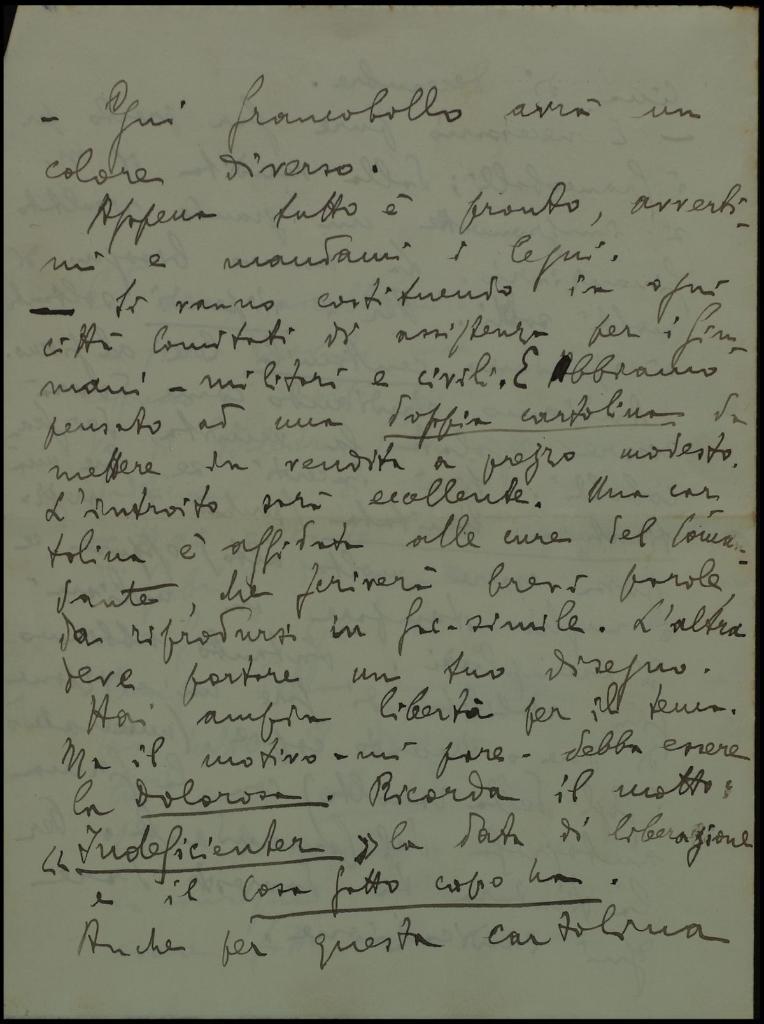 - Ogni francobollo avrà un
colore diverso.
Appena tutto è pronto, avverti-
mi e mandami i legni.
- Si vanno costituendo in ogni
città Comitati di assistenza per i fiu-
mani - militari e civili. E abbiamo
pensato ad una doppia cartolina da
mettere in vendita a prezzo modesto.
L'introito sarà eccellente. Una car
tolina è affidata alle cure del Coman-
dante, che scriverà brevi parole
da riprodursi in fac-simile. L'altra
deve portare un tuo disegno.
Hai ampia libertà per il tema.
Ma il motivo - mi pare - debba essere
la Dolorosa. Ricorda il motto:
« Indeficienter » la data di liberazione
e il Cosa fatta capo ha.
Anche per questa cartolina